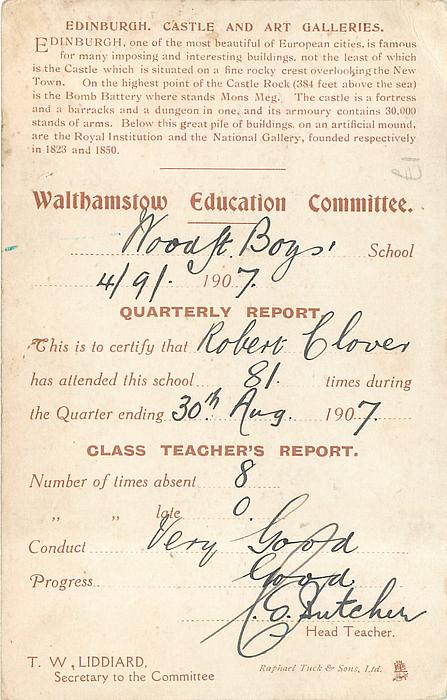 EDINBURGH. CASTLE AND ART GALLERIES.
EDINBURGH, one of the most beautiful of European cities, is famous
for many imposing and interesting buildings, not the least of which
is the Castle which is situated on a fine rocky crest overlooking the New
Town. On the highest point of the Castle Rock (384 feet above the sea)
is the Bomb Battery where stands Mons Meg. The castle is a fortress
and a barracks and a dungeon in one, and its armoury contains 30,000
stands of arms. Below this great pile of buildings, on an artificial mound,
are the Royal Institution and the National Gallery, founded respectively
in 1823 and 1850.
Walthamstow Education Committee.
Wood St. Boys' School
4/9/. 1907.
QUARTERLY REPORT
This is to certify that Robert Clover
has attended this school 81. times during
the Quarter ending 30th Aug. 1907.
CLASS TEACHER'S REPORT.
Number of times absent 8
" " late 0.
Conduct Very Good
Progress Good
Butcher
Head Teacher.
T. W. LIDDIARD,
Secretary to the Committee
Raphael Tuck & Sons, Ltd.